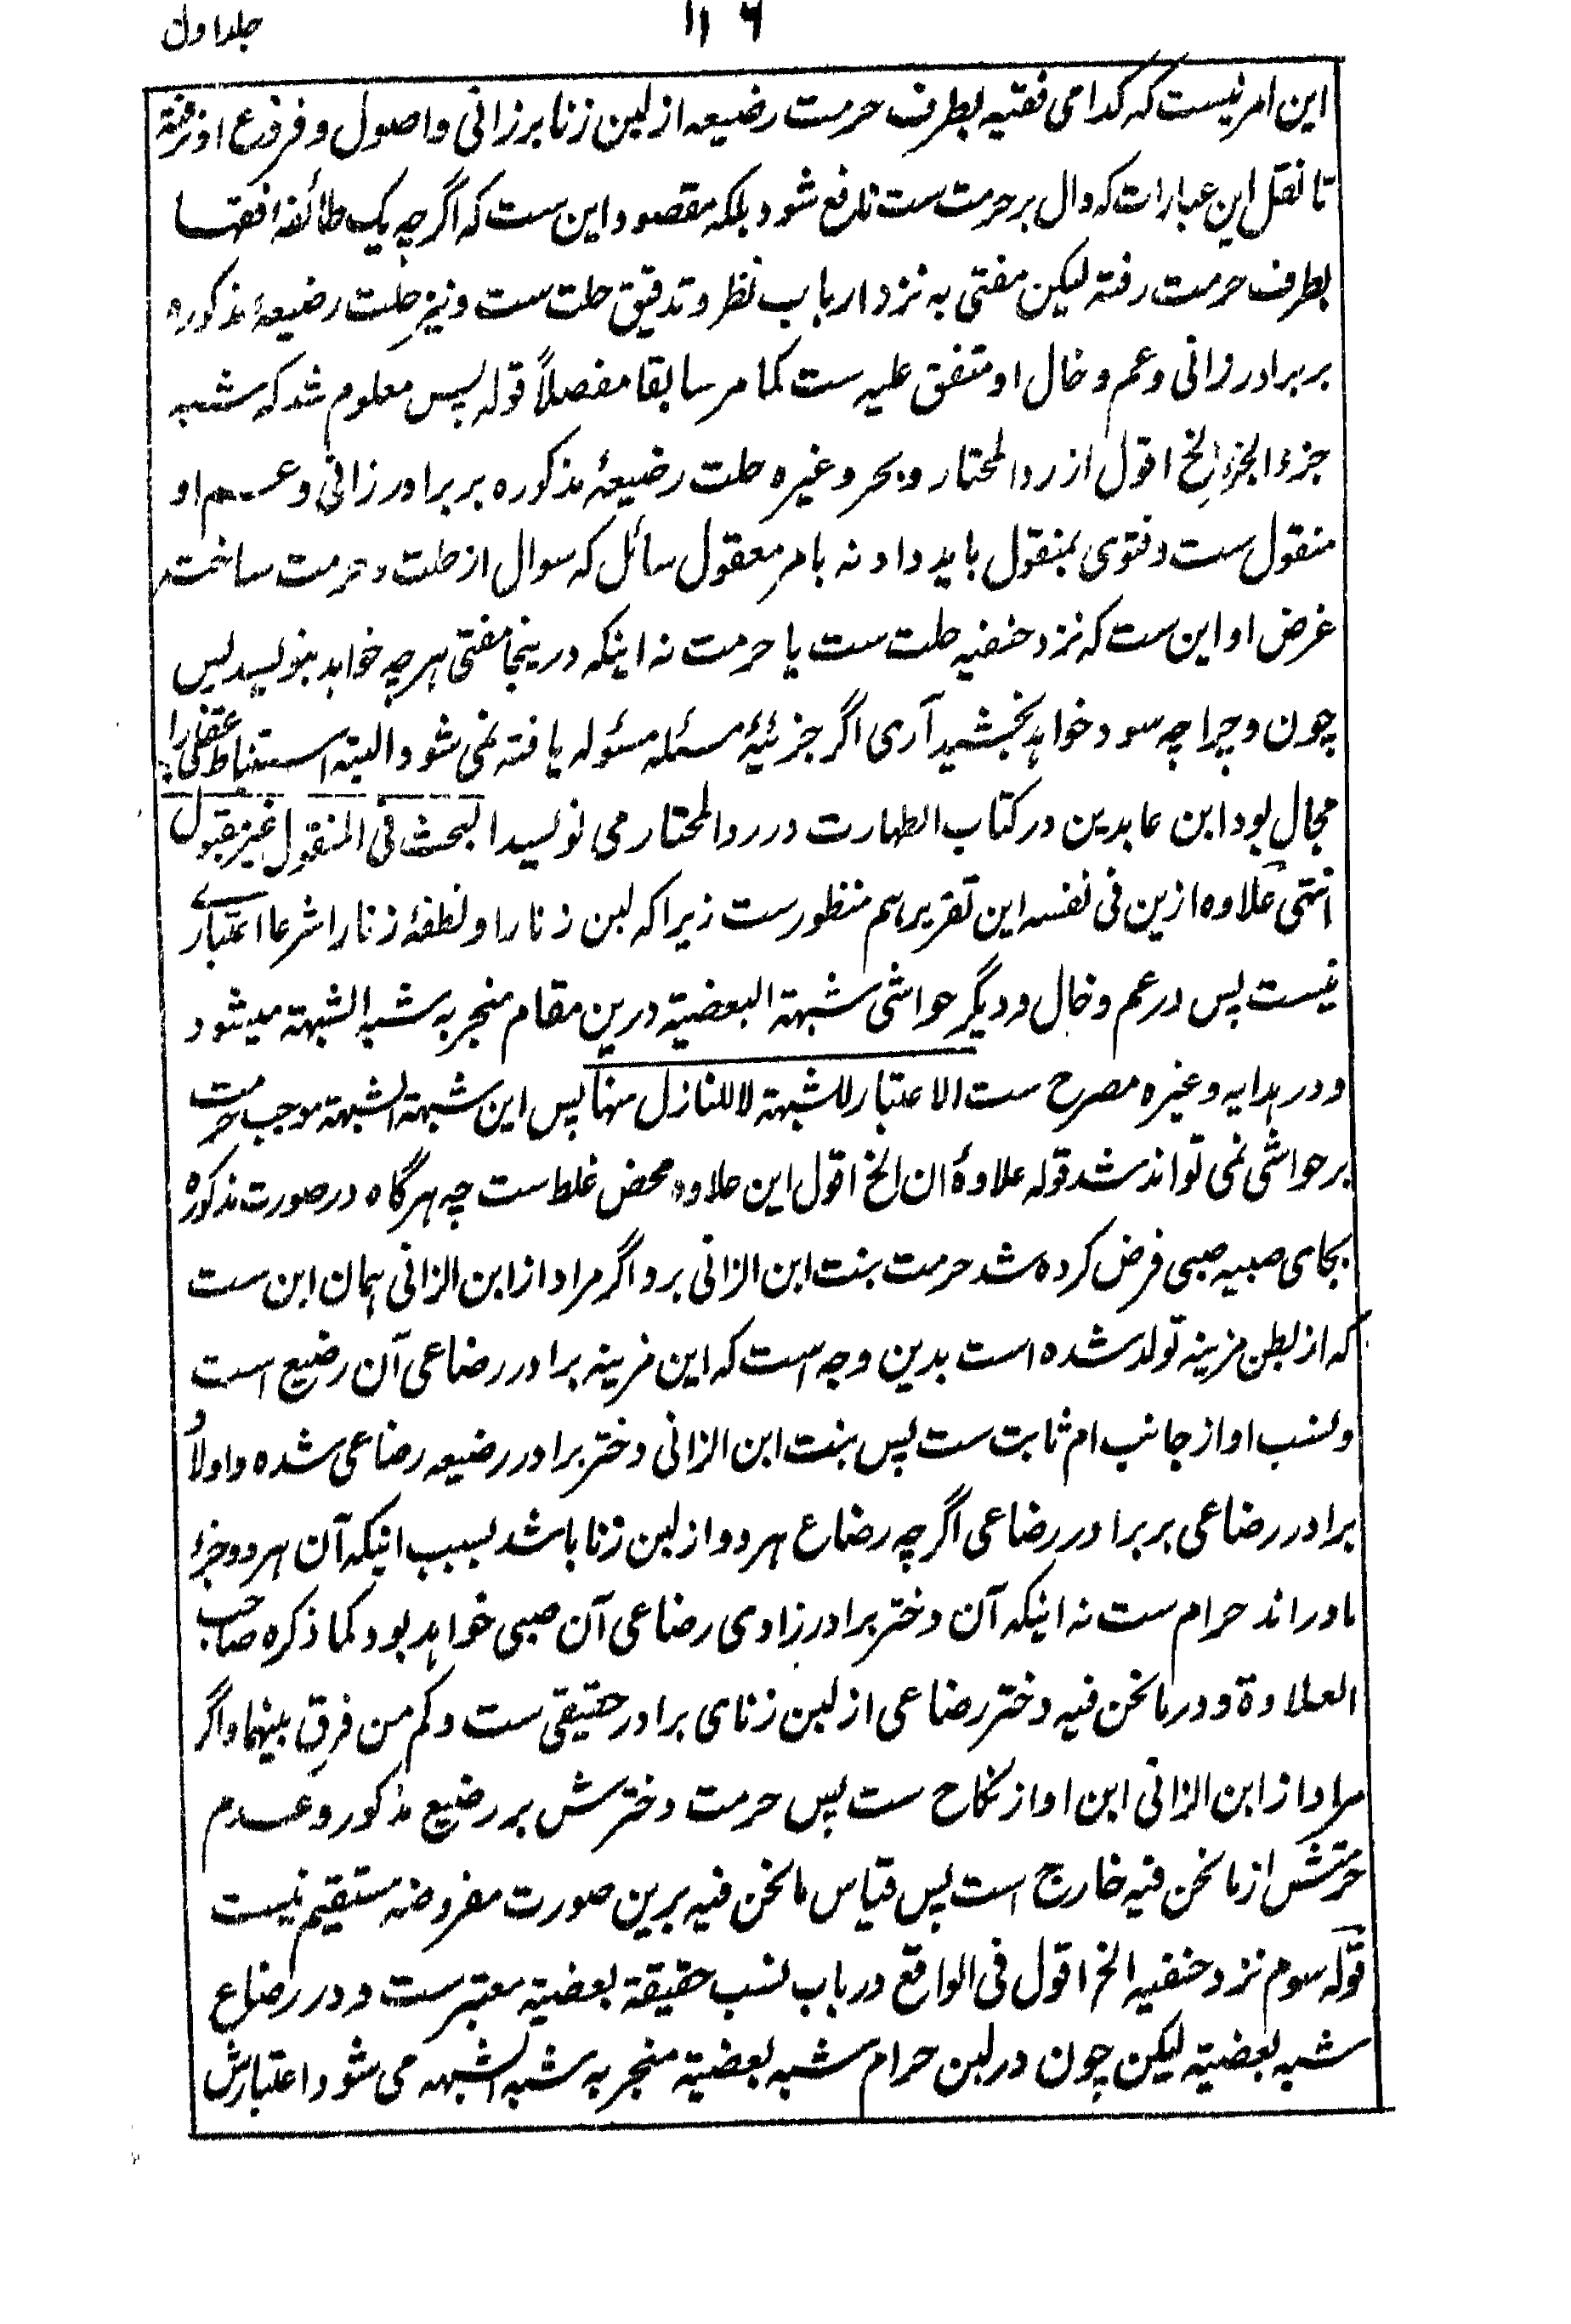 جلد اول
۱۱۶
این امر نیست که کدامی فقیه بطرف حرمت رضیعه از لبن زنا بر زانی و اصول و فروع او نرفته
تا نقل این عبارات که دال بر حرمت ست نافع شود بلکه مقصود این ست که اگر چه یک طائفه افقها
بطرف حرمت رفته لیکن مفتی به نزد ارباب نظر و تدقیق حلت ست و نیز حلت رضیعۀ مذکوره
بر برادر زانی و عم و خال او متفق علیه ست کما مر سابقا مفصلاً قوله پس معلوم شد که شبه
جزء الجزء الخ اقول از رد المحتار و بحر و غیره حلت رضیعۀ مذکوره بر برادر زانی و عم او
منقول ست و فتوی بمنقول باید داد نه بامر معقول سائل که سوال از حلت و حرمت ساخته
غرض او این ست که نزد حنفیه حلت ست یا حرمت نه اینکه درینجا مفتی هر چه خواهد بنویسد پس
چون و چرا چه سود خواهد بخشید آری اگر جزئیۀ مسئله مسئوله یافته نمی شود البته استنباط عقلی را
مجال بود ابن عابدین در کتاب الطهارت در رد المحتار می نویسد البحث فی المنقول غیر مقبول
انتهی علاوه ازین فی نفسه این تقریر هم منظور ست زیرا که لبن زنا را و نطفۀ زنا را شرعا اعتباری
نیست پس در عم و خال و دیگر حواشی شبهة البعضیة درین مقام منجر به شبه الشبهة میشود
و در هدایه و غیره مصرح ست الاعتبار للشبهة لا للنازل منها پس این شبهة الشبهة موجب حرمت
بر حواشی نمی تواند شد قوله علاوۀ ان الخ اقول این علاوه محض غلط ست چه هرگاه در صورت مذکوره
بجای صبیه صبی فرض کرده شد حرمت بنت ابن الزانی برو اگر مراد از ابن الزانی همان ابن ست
که از بطن مزینه تولد شده است بدین وجه است که این مزینه برادر رضاعی آن رضیع است
و نسب او از جانب ام ثابت ست پس بنت ابن الزانی دختر برادر رضیعه رضاعی شده و اولاد
برادر رضاعی بر برادر رضاعی اگر چه رضاع هر دو از لبن زنا باشد بسبب اینکه آن هر دو جزء
مادر اند حرام ست نه اینکه آن دختر برادرزادی رضاعی آن صبی خواهد بود کما ذکره صاحب
العلاوة و در ما نحن فیه دختر رضاعی از لبن زنای برادر حقیقی ست و کم من فرق بینهما و اگر
مراد از ابن الزانی ابن او از نکاح ست پس حرمت دخترش بر رضیع مذکور و عدم
حرمتش از ما نحن فیه خارج است پس قیاس ما نحن فیه برین صورت مفروضه مستقیم نیست
قوله سوم نزد حنفیه الخ اقول فی الواقع در باب نسب حقیقة بعضیة معتبر ست و در رضاع
شبه بعضیة لیکن چون در لبن حرام شبه بعضیة منجر به شبه الشبهه می شود اعتبارش